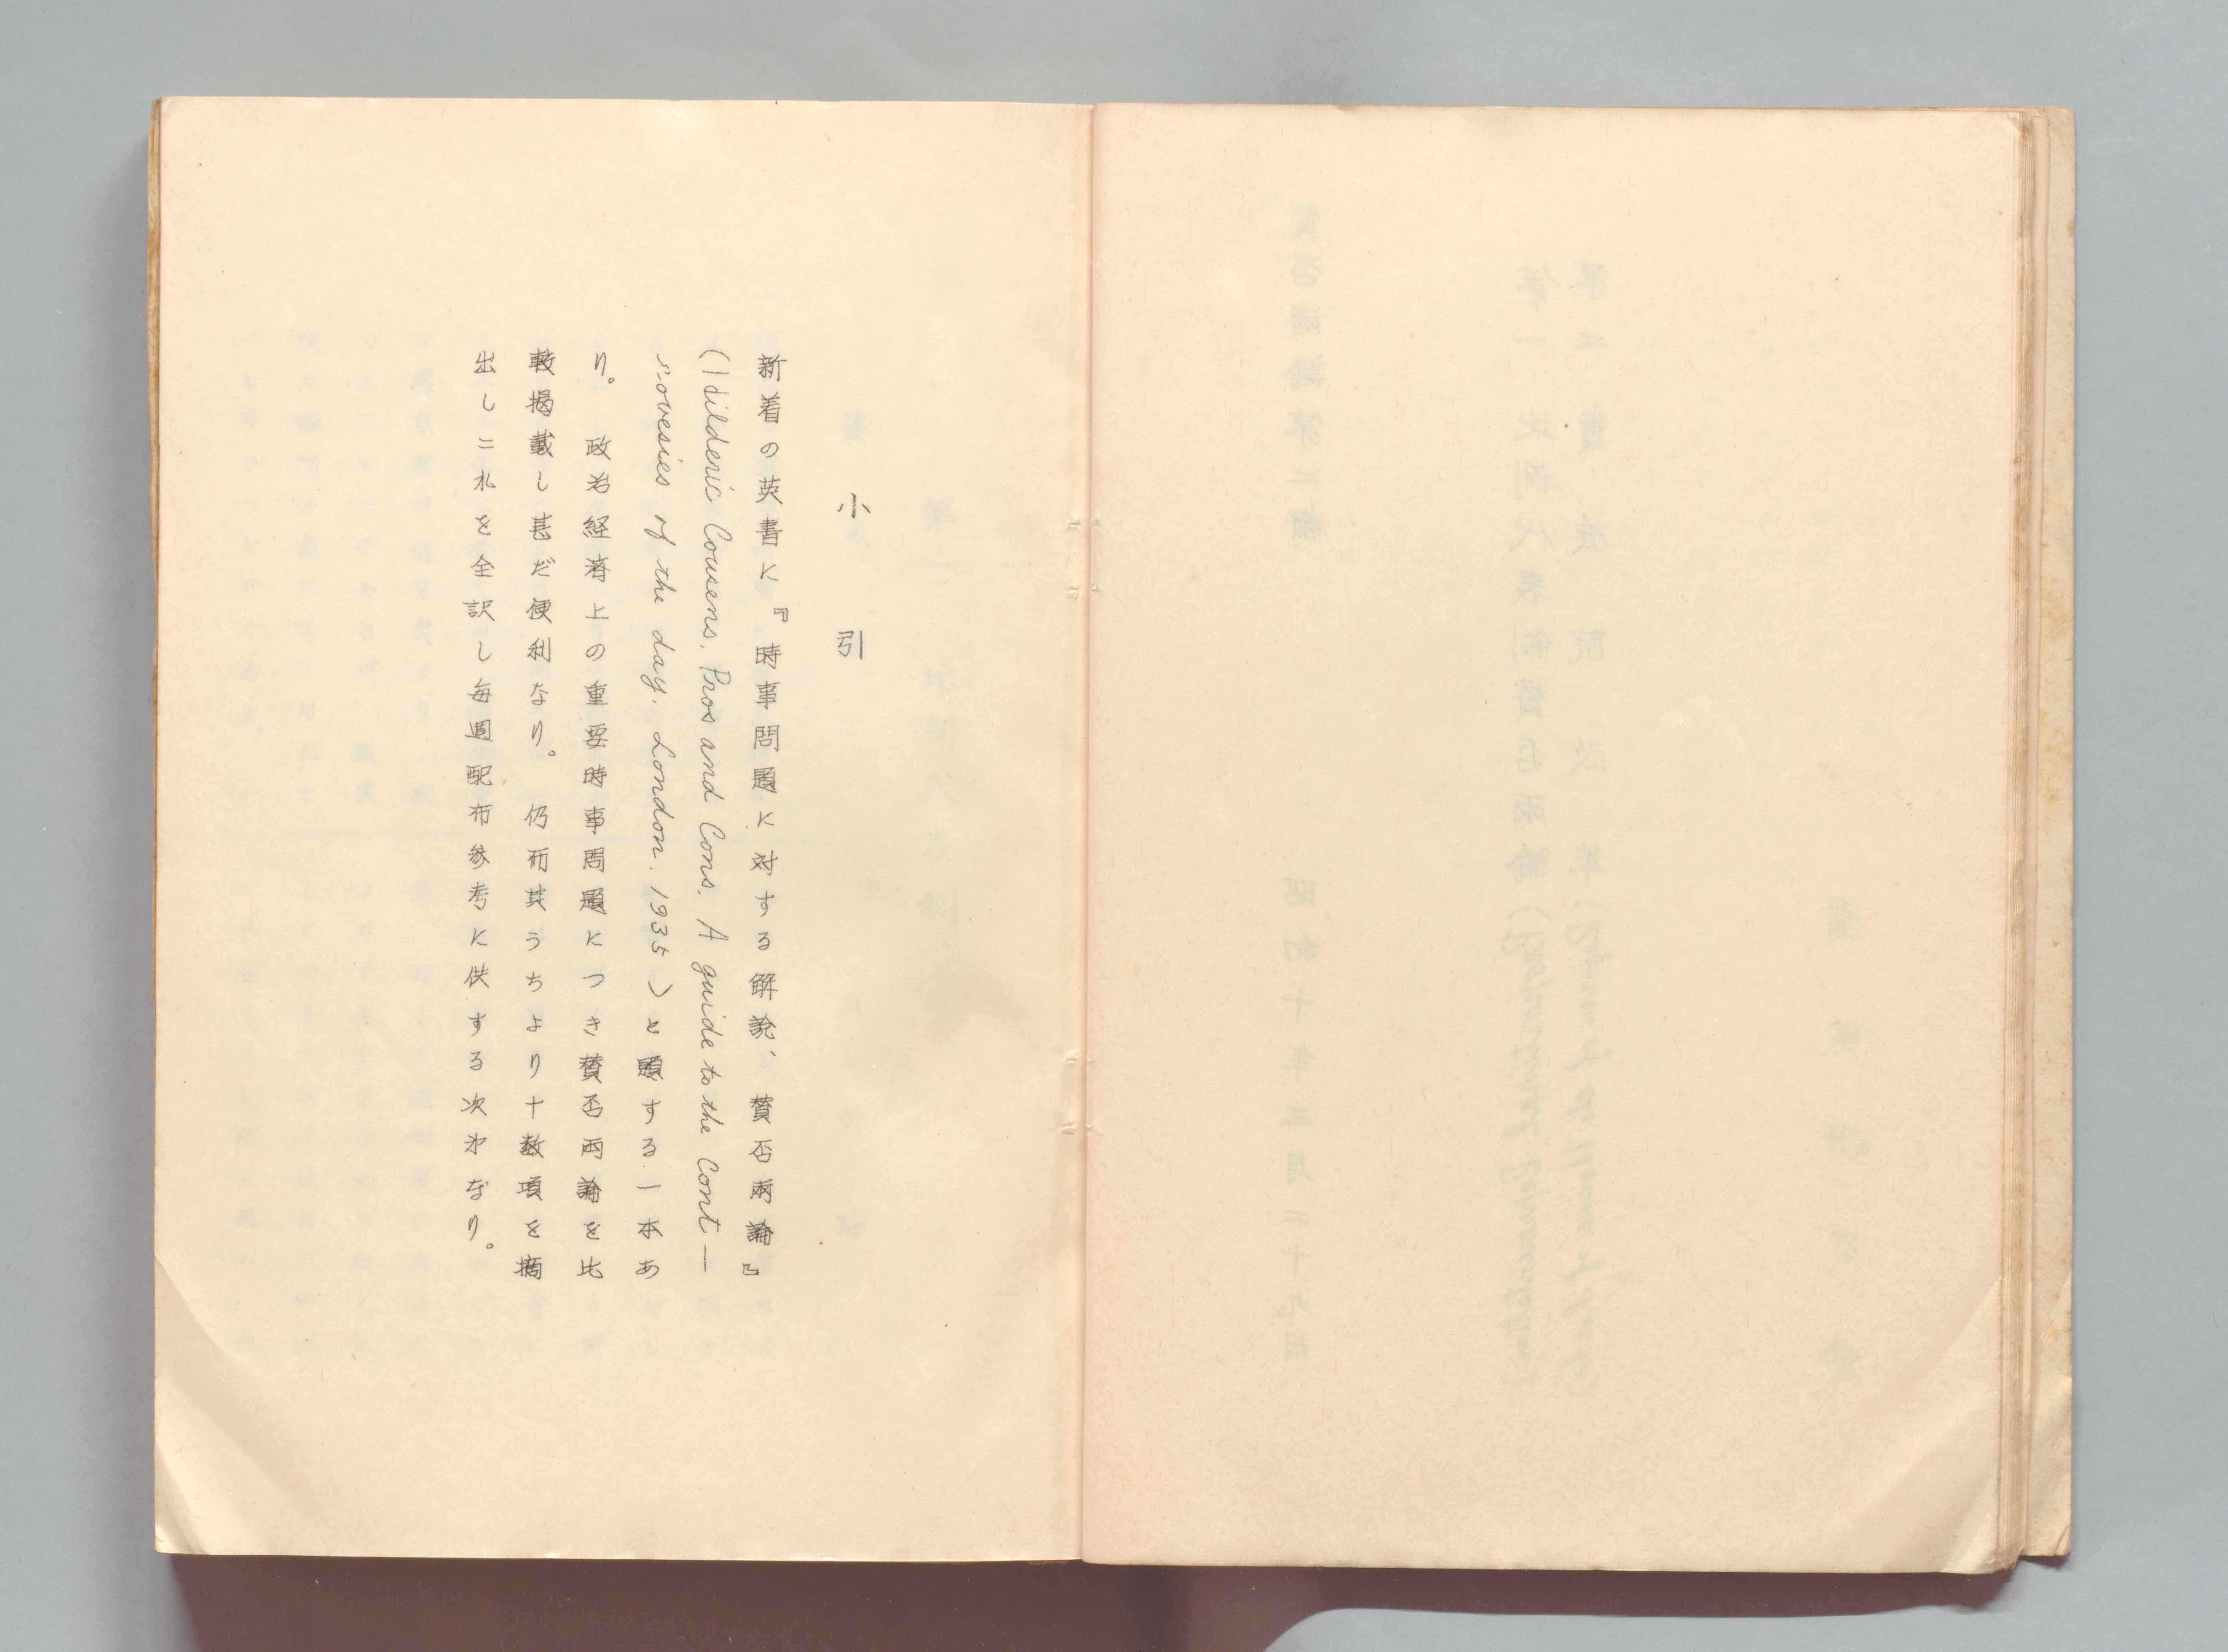 小引
新着の英書に『時事問題に対する解説、賛否両論』
(Hilderic Cousens, Pros and Cons, A guide to the Cont—
roversies of the day. London. 1935)と題する一本あ
り。政治経済上の重要時事問題につき賛否両論を比
較掲載し甚だ便利なり。仍而其うちより十数項を摘
出しこれを全訳し毎週配布参考に供する次第なり。